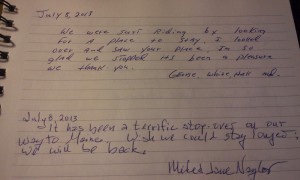 July 8, 2013
We were just riding by looking
for a place to stay. I looked
over and saw your place. I'm so
glad we stopped it's been a pleasure
we thank you.
George, White Hall md.
July 8, 2013
It has been a terrific stop-over on our
way to Maine. Wish we could stay longer.
We will be back.
Michael